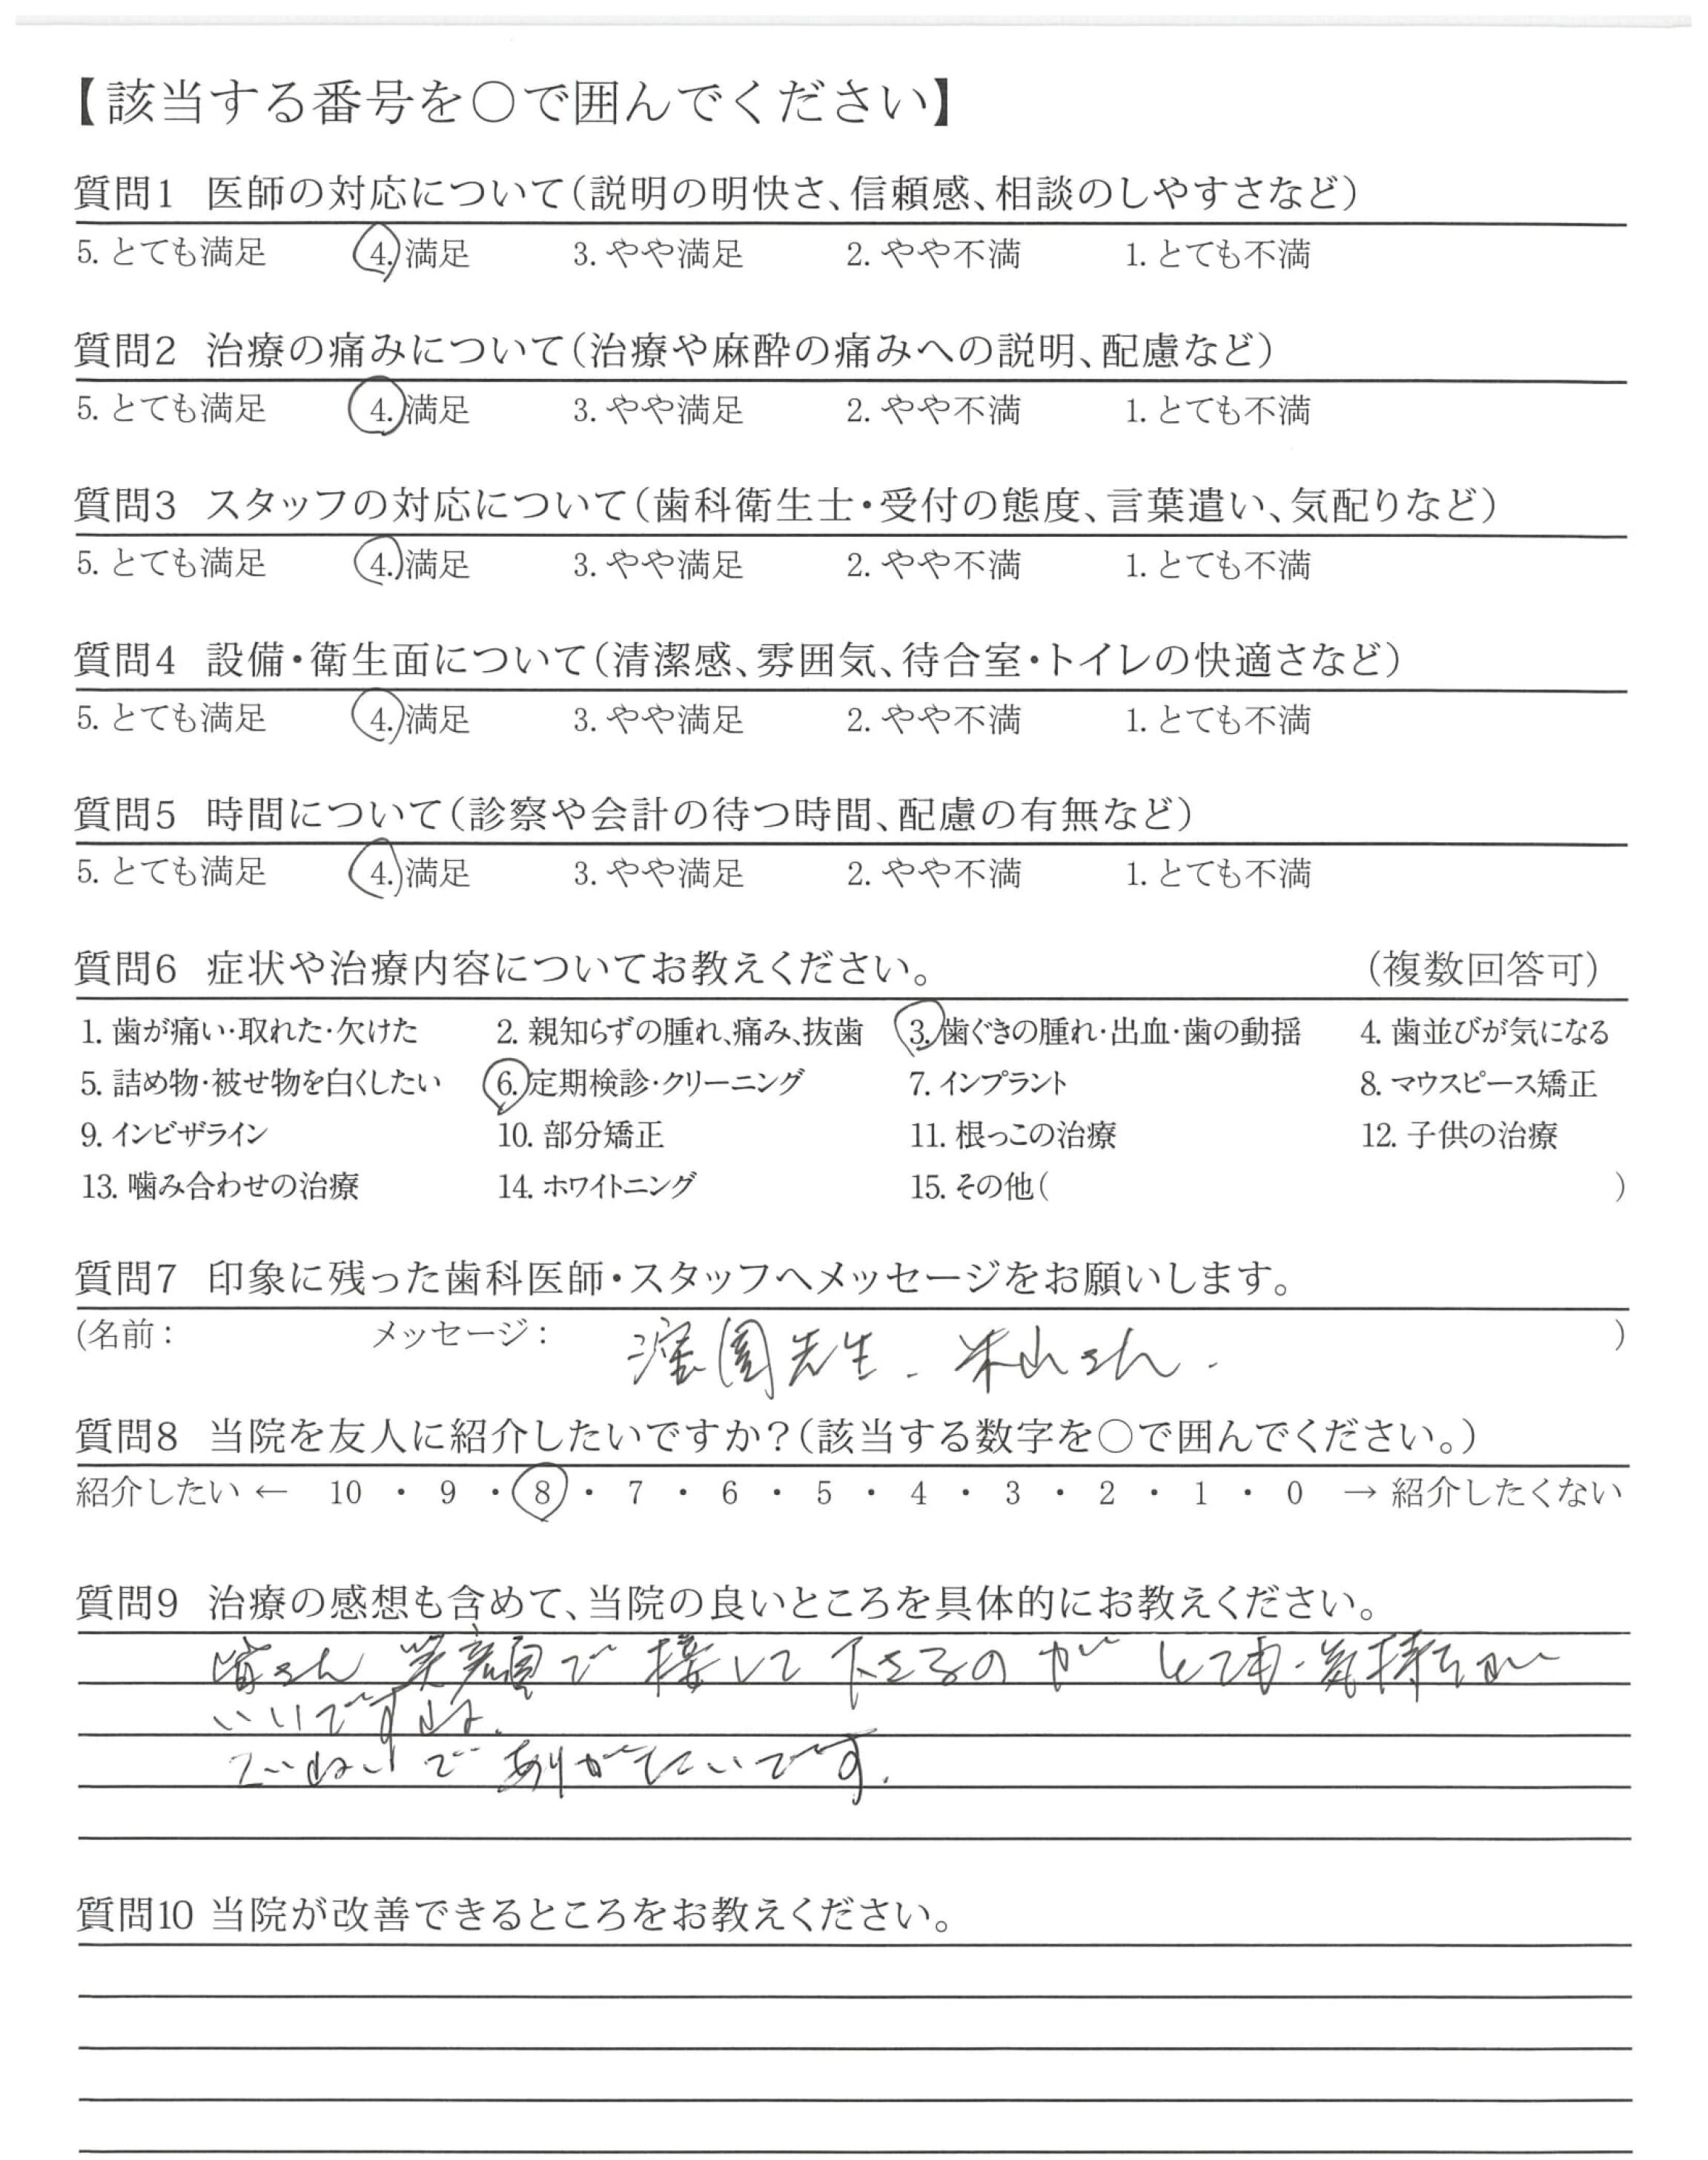 【該当する番号を○で囲んでください】
質問1 医師の対応について(説明の明快さ、信頼感、相談のしやすさなど)
5. とても満足 4. 満足 3. やや満足 2. やや不満 1. とても不満
質問2 治療の痛みについて(治療や麻酔の痛みへの説明、配慮など)
5. とても満足 4. 満足 3. やや満足 2. やや不満 1. とても不満
質問3 スタッフの対応について(歯科衛生士・受付の態度、言葉遣い、気配りなど)
5. とても満足 4. 満足 3. やや満足 2. やや不満 1. とても不満
質問4 設備・衛生面について(清潔感、雰囲気、待合室・トイレの快適さなど)
5. とても満足 4. 満足 3. やや満足 2. やや不満 1. とても不満
質問5 時間について(診察や会計の待つ時間、配慮の有無など)
5. とても満足 4. 満足 3. やや満足 2. やや不満 1. とても不満
質問6 症状や治療内容についてお教えください。 (複数回答可)
1. 歯が痛い・取れた・欠けた 2. 親知らずの腫れ、痛み、抜歯 3. 歯ぐきの腫れ・出血・歯の動揺 4. 歯並びが気になる
5. 詰め物・被せ物を白くしたい 6. 定期検診・クリーニング 7. インプラント 8. マウスピース矯正
9. インビザライン 10. 部分矯正 11. 根っこの治療 12. 子供の治療
13. 噛み合わせの治療 14. ホワイトニング 15. その他( )
質問7 印象に残った歯科医師・スタッフへメッセージをお願いします。
(名前: メッセージ: 先生. 米山さん. )
質問8 当院を友人に紹介したいですか?(該当する数字を○で囲んでください。)
紹介したい ← 10 ・ 9 ・ 8 ・ 7 ・ 6 ・ 5 ・ 4 ・ 3 ・ 2 ・ 1 ・ 0 → 紹介したくない
質問9 治療の感想も含めて、当院の良いところを具体的にお教えください。
皆さん 笑顔で 接して 下さるの が とても 気持ちが
いいですね.
ていねいで ありがたいです.
質問10 当院が改善できるところをお教えください。